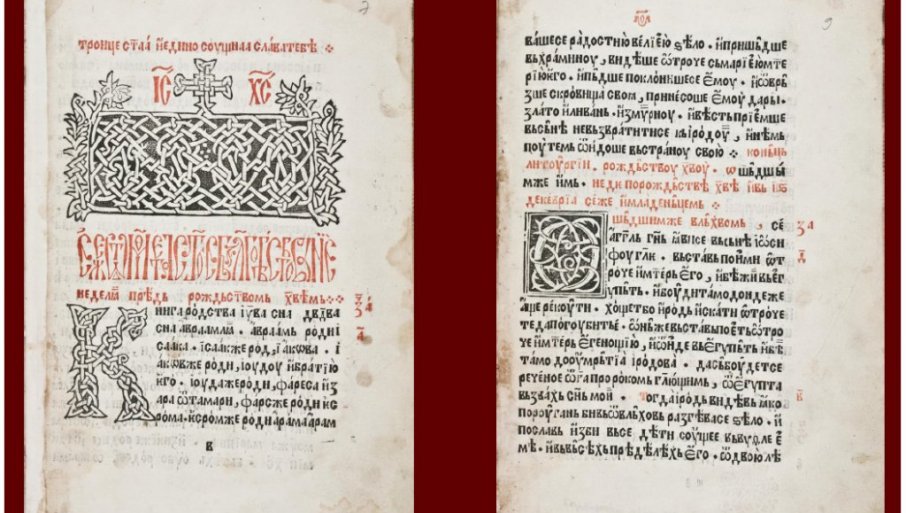 троице ст҃аа и҆едино соущнаа слава тебѣ
ІС҃ ХС҃
неделꙗ прѣдь рождьствомь хв҃ѣмь
Книга родства іу҃ва сн҃а дв҃два
сн҃а авраамлꙗ . авраамь роди і
саака . ісаакже род, іакѡва . і
акѡвже роди, іоудоу ибратїю
ѥго . іоудажероди, фареса из
ара ѿтамари, фарсже роди ес
рома . есромже роди арама арам
в
вашесе радостїю велїею ѕѣло . и пришьдше
вьхраминоу, видѣше ѿтроуе сьмарїею мте
рїю ѥго . и пьдше поклонишесе ѥмоу . и ѿврь
зше скровища своꙗ, принесоше ѥмоу дары .
злато и ливань . измурноу . и вѣсть прїемше
вьсьнѣ невьзвратитисе кь іродоу, и нѣмь
поутемь ѿидоше вьстраноу свою коньць
литоургїи, рождьствоу хв҃оу ѡшьдшы
мже имь . нед порождьствѣ хв҃ѣ
декеврїа се же имладеньцемь
Ѿшьдшимже вльхвомь, се
за
агг҃ль гн҃ь ꙗвисе вьсьнѣ іѡси
фоу гл҃ꙗ . вьставь поими ѿт
роуе и мтерь ѥго, и бѣжи вьег
упьть . и боуди тамо дондеже
аще рекоу ти . хощетбо иродь искати ѿтроуе
те да погоубитье . ѡньже вьставь поеть ѿтро
уе и мтерь ѥго нощїю, и ѿиде вьегупьть и бѣ
тамо до оумрьтїа іродова . да сьбоудетсе
реченое ѿга пророкомь гл҃ющимь, ѿ егупта
вьзвахь сн҃ь мои . тогда іродь видѣвь ꙗко
пороугань бивь ѿвльховь разгнѣвасе ѕѣло . и
пославь изби вьсе дѣти соущее вь виѳлее
мѣ . и вьвьсѣхь прѣдѣлѣхь ѥго . ѿ двою лѣ